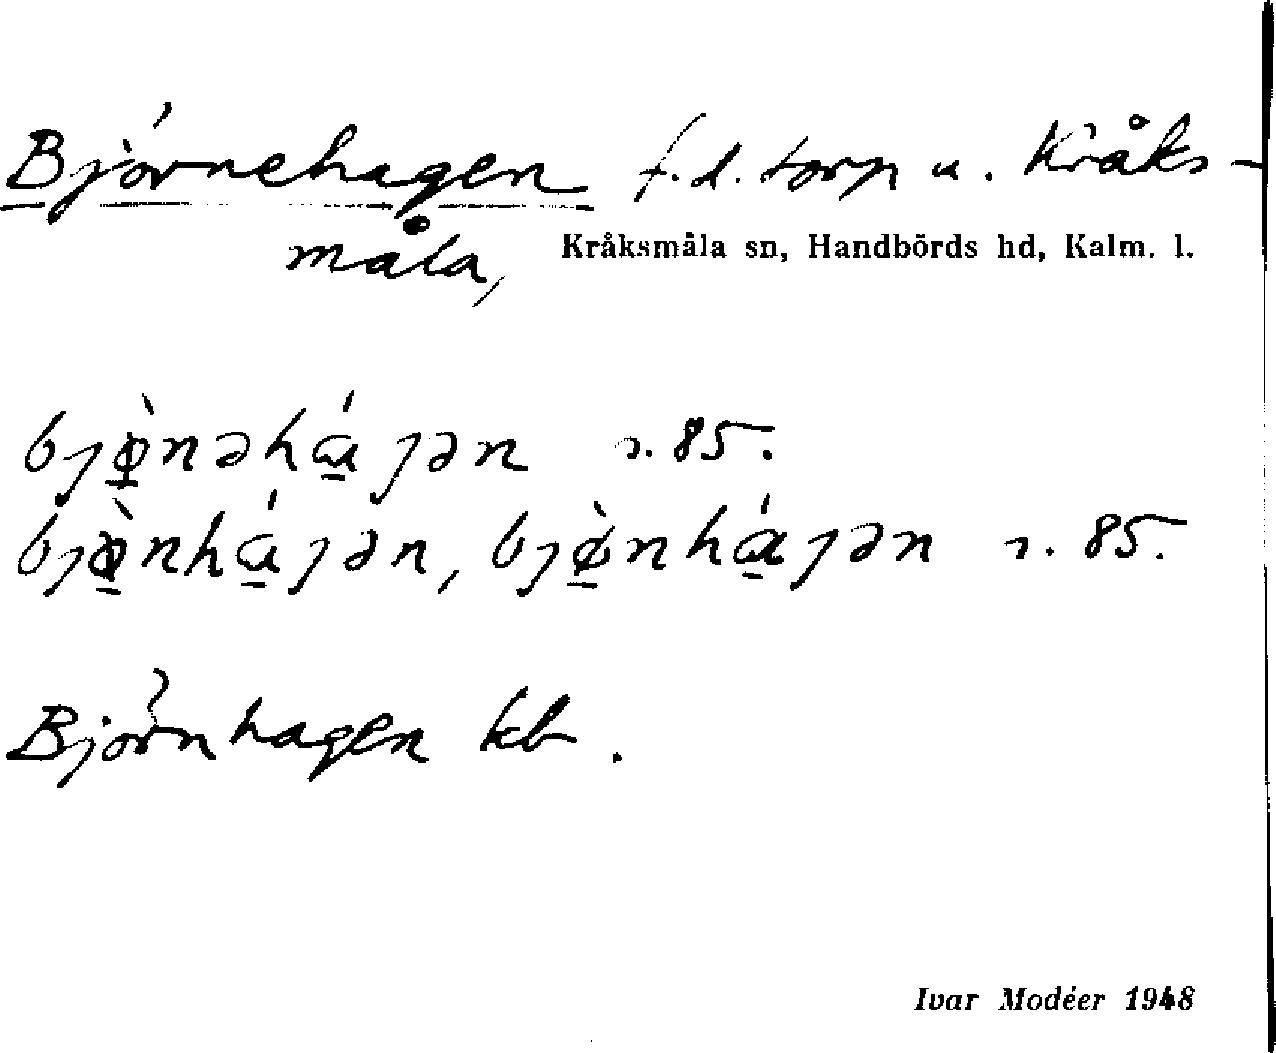 Björnehagen f.d. torp u. Kråks-
måla, Kråksmåla sn, Handbörds hd, Kalm. l.
bjø̀nəhɑ́jən s. 85.
bjø̀nhɑ́jən, bjø̀nhɑ́jən s. 85.
Björnhagen kb.
Ivar Modéer 1948